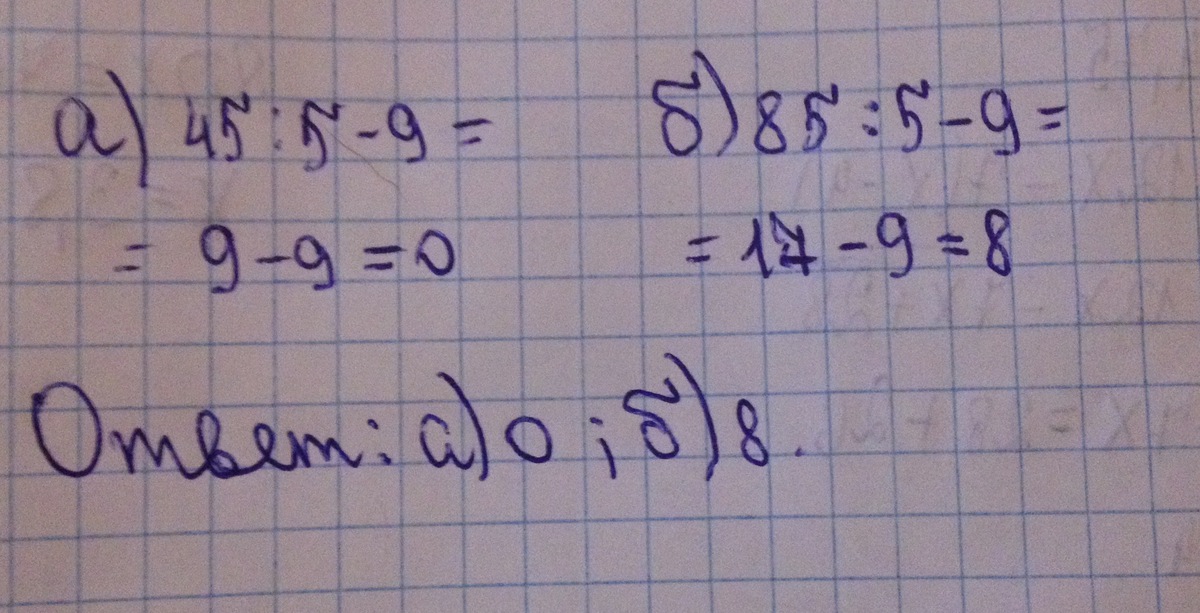 а) 45:5-9= б) 85:5-9=
= 9-9=0 =17-9=8
Ответ: а) 0; б) 8.